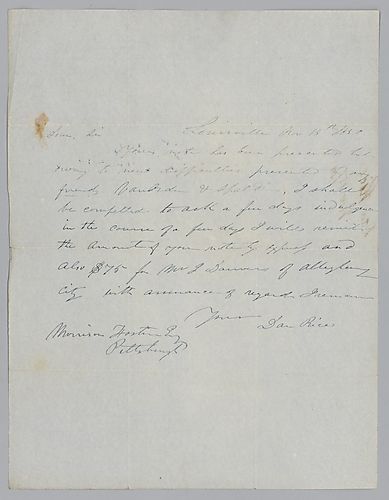 Louisville Nov 15th 1850
Dear Sir
Your note has been presented but
owing to new difficulties presented by my
friends & I shall
be compelled to ask a few days indulgence
in the course of a few days I will remit
the amount of your note by and
also $75 for Mr J of Allegheny
city with assurance of regards I remain
Yours
Dan Rice
Morrison Foster Esq
Pittsburgh